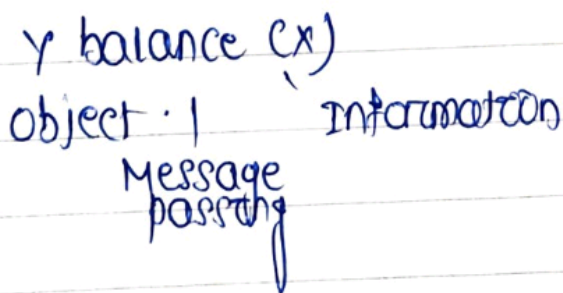 Y balance (x)
Object · | Information
Message
passing